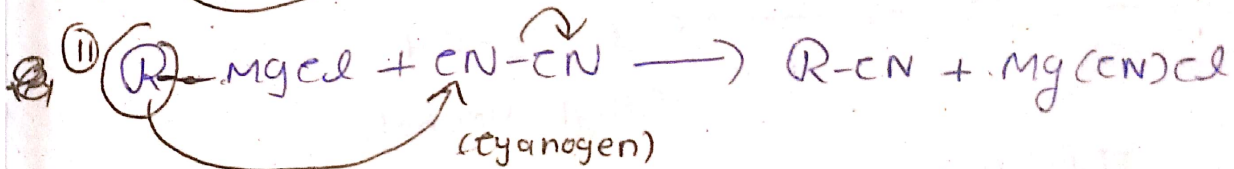 ⑪ R-MgCl + CN-CN ⟶ R-CN + Mg(CN)Cl
(Cyanogen)